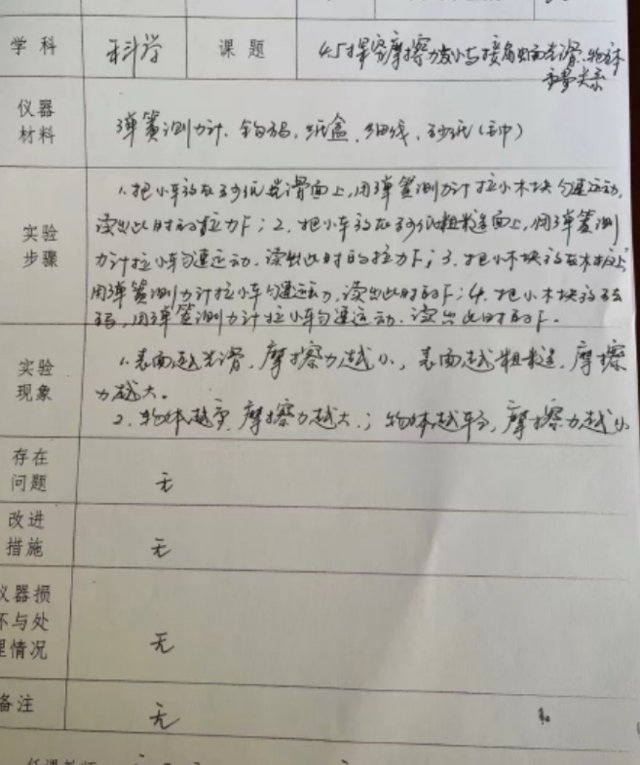 学 科 科学 课 题 4.5探究摩擦力大小与接触面光滑、物体
重量关系
仪器
材料 弹簧测力计、钩码、纸盒、细线、砂纸(毛巾)
实验
步骤
1.把小车放在砂纸光滑面上,用弹簧测力计拉小木块匀速运动,
读出此时的拉力F;2.把小车放在砂纸粗糙面上,用弹簧测
力计拉小车匀速运动,读出此时的拉力F;3.把小木块放在木板上
用弹簧测力计拉小车匀速运动,读出此时的F;4.把小木块放
码,用弹簧测力计拉小车匀速运动,读出此时的F.
实验
现象
1.表面越光滑,摩擦力越小,表面越粗糙,摩擦
力越大。
2.物体越重,摩擦力越大.;物体越轻,摩擦力越小
存在
问题 无
改进
措施 无
仪器损
坏与处
理情况 无
备注 无